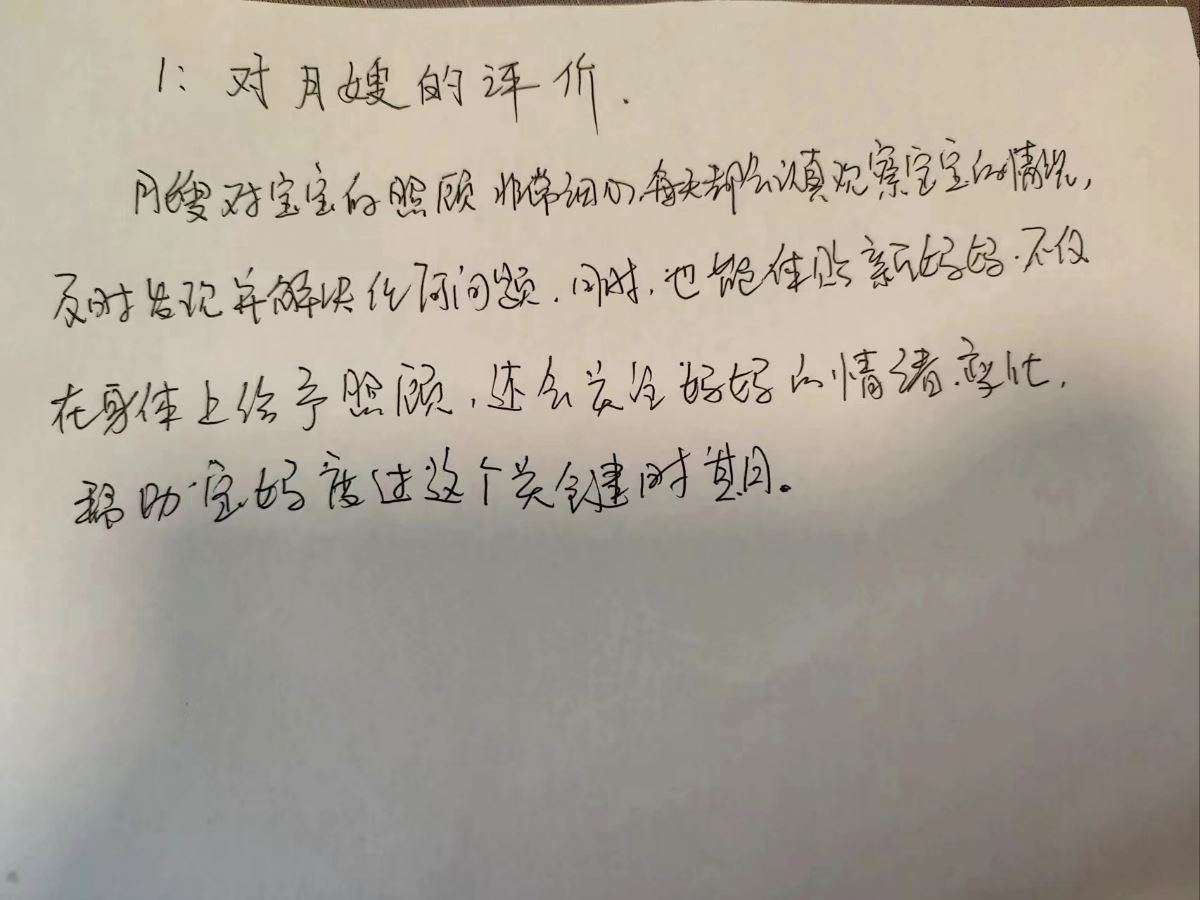 1: 对月嫂的评价.
月嫂对宝宝的照顾非常细心,每天都会认真观察宝宝的情况,
及时发现并解决任何问题.同时,也能体贴新妈妈.不仅
在身体上给予照顾,还会关注妈妈的情绪变化,
帮助宝妈度过这个关键时期。